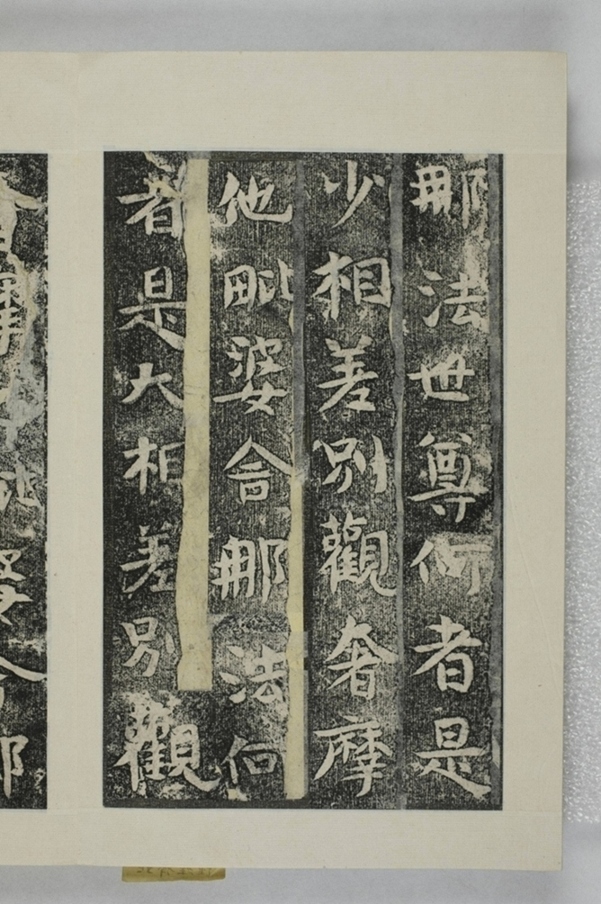 那法世尊何者是
少相差別觀奢摩
他毗婆舍那法何
者是大相差別觀